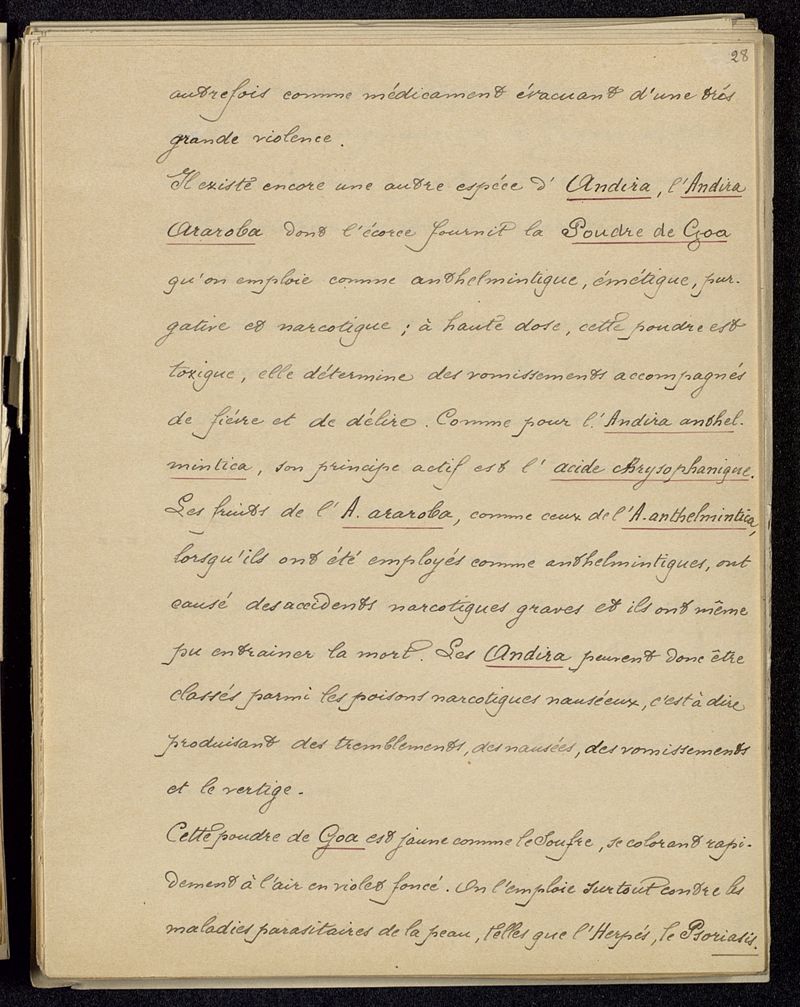 28
autrefois comme médicament évacuant d'une très
grande violence.
Il existe encore une autre espèce d'Andira, l'Andira
Araroba dont l'écorce fournit la Poudre de Goa
qu'on emploie comme anthelmintique, émétique, pur-
gative et narcotique ; à haute dose, cette poudre est
toxique, elle détermine des vomissements accompagnés
de fièvre et de délire. Comme pour l'Andira anthel-
mintica, son principe actif est l'acide chrysophanique.
Les fruits de l'A. araroba, comme ceux de l'A. anthelmintica,
lorsqu'ils ont été employés comme anthelmintiques, ont
causé des accidents narcotiques graves et ils ont même
pu entrainer la mort. Les Andira peuvent donc être
classés parmi les poisons narcotiques nauséeux, c'est à dire
produisant des tremblements, des nausées, des vomissements
et le vertige.
Cette poudre de Goa est jaune comme le Soufre, se colorant rapi-
dement à l'air en violet foncé. On l'emploie surtout contre les
maladies parasitaires de la peau, telles que l'Herpés, le Psoriasis.